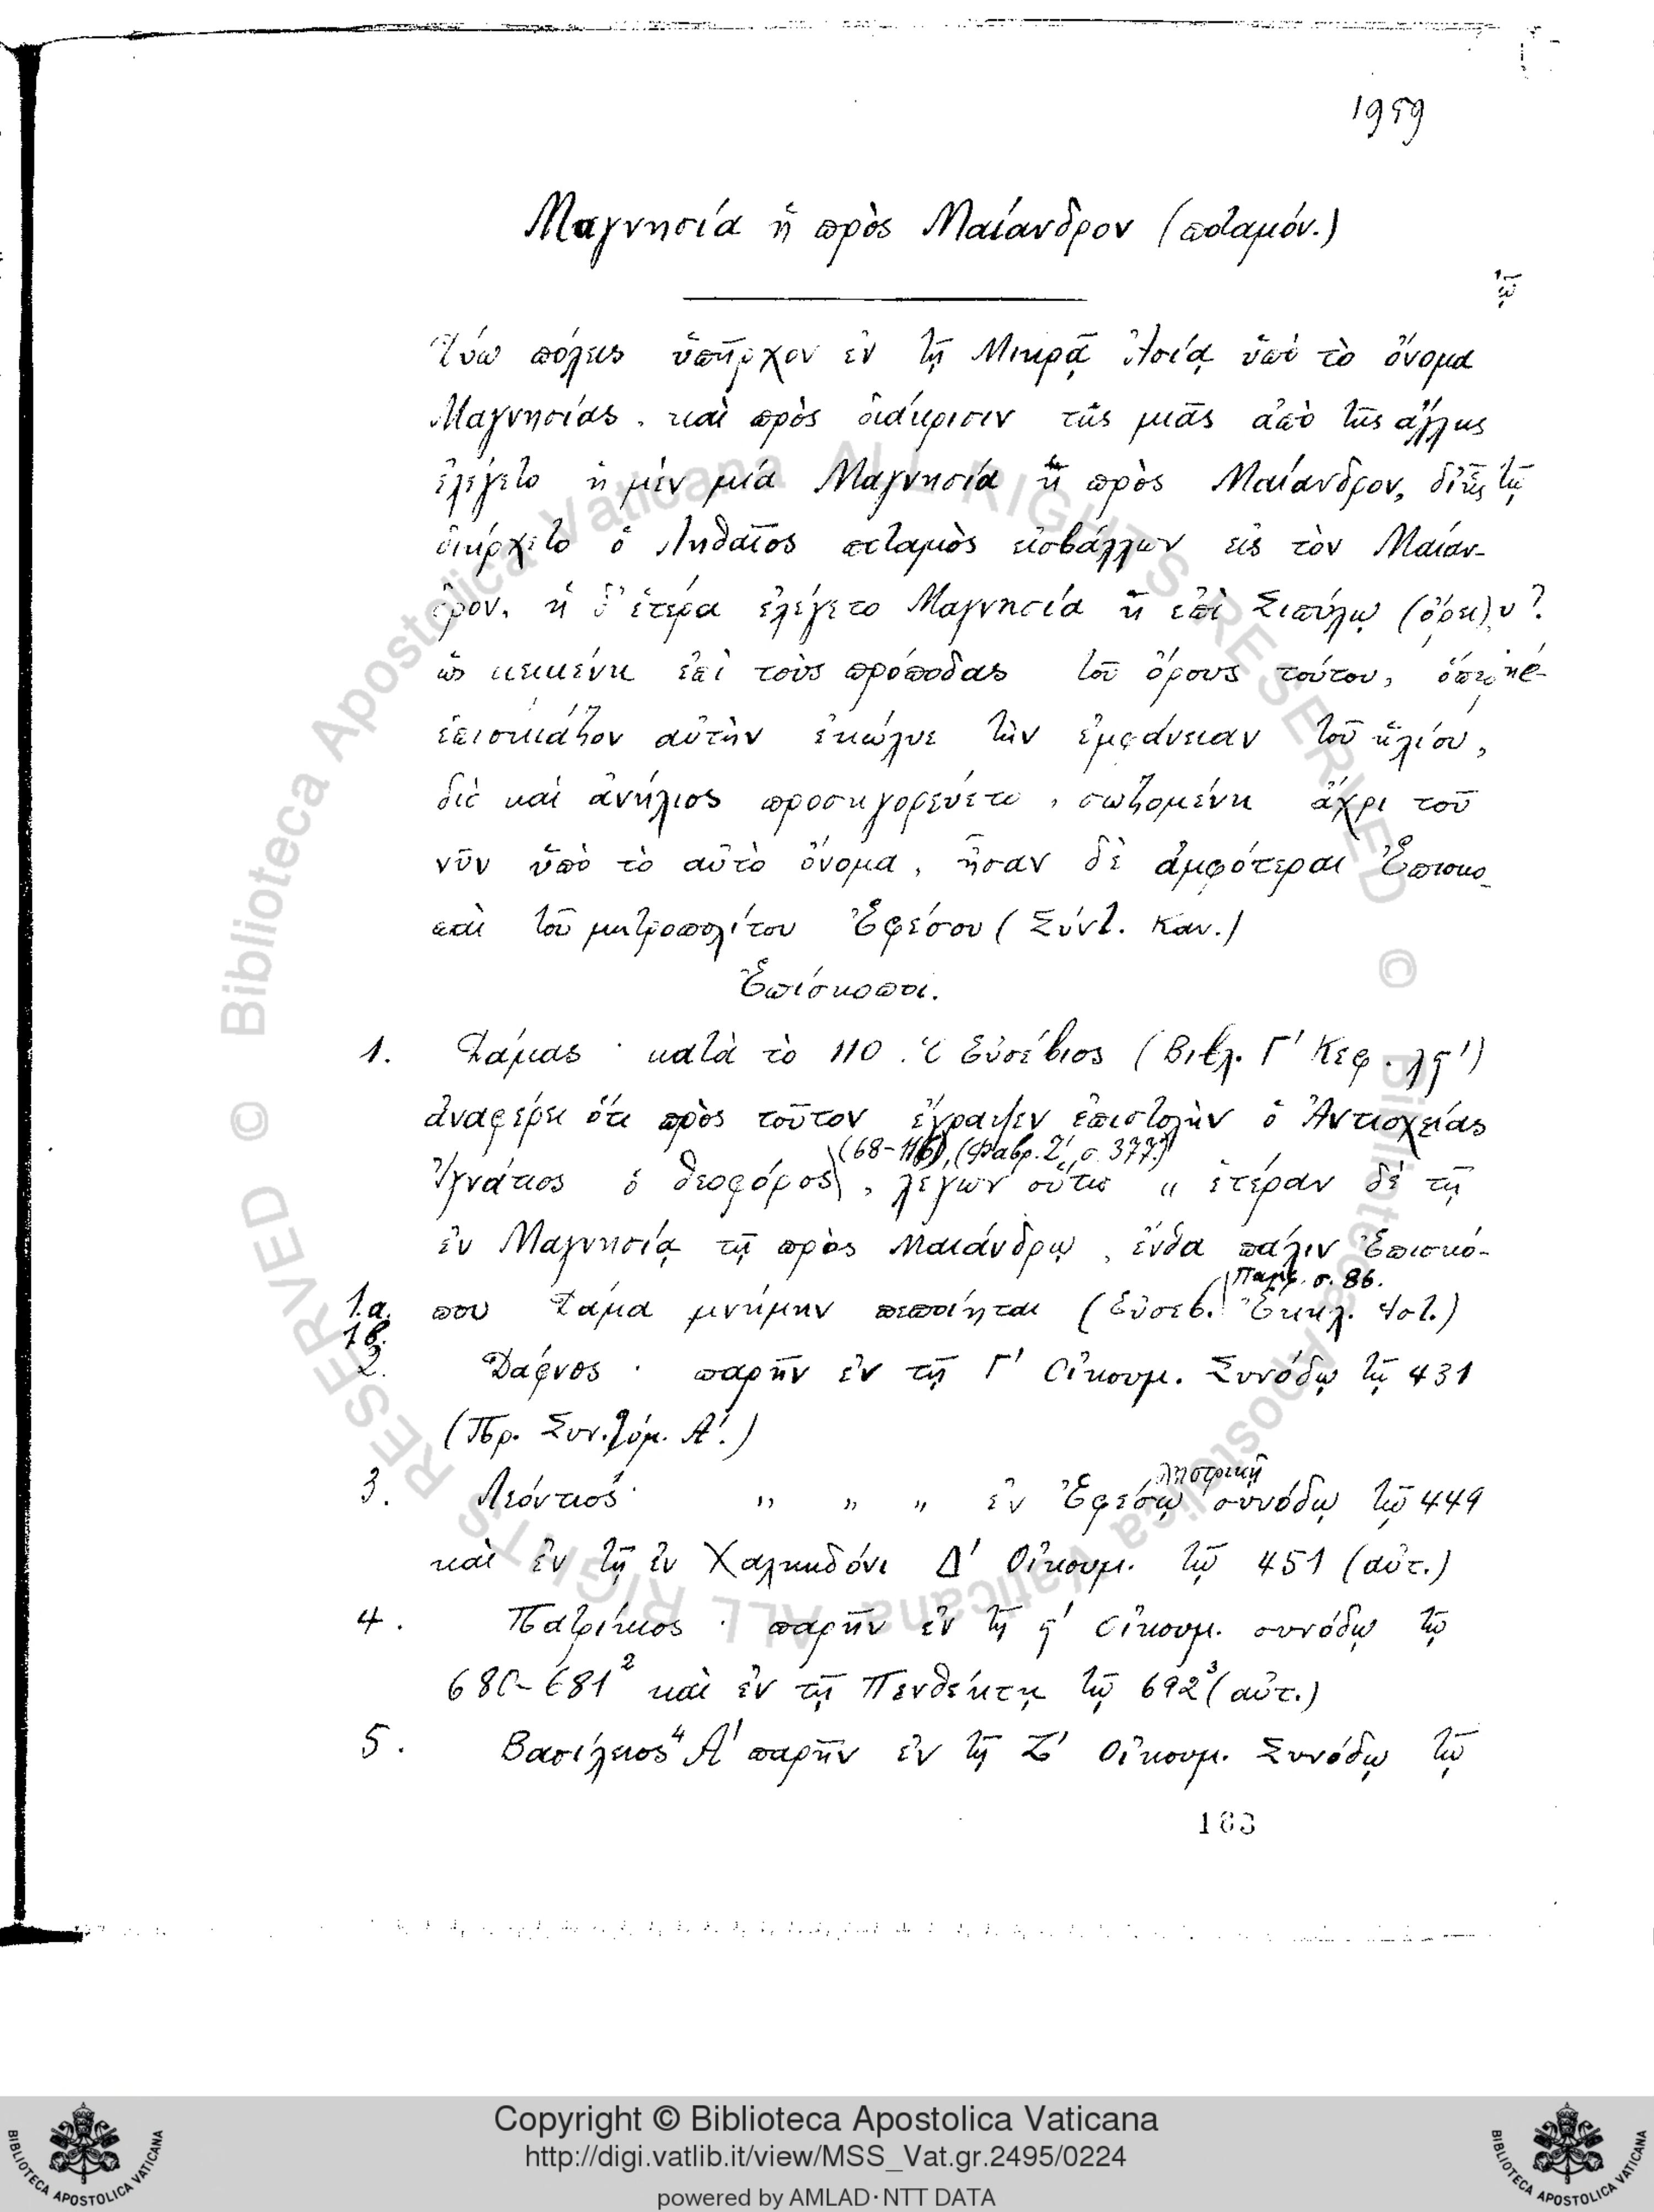 1959
Μαγνησία ἡ πρὸς Μαίανδρον (ποταμόν.)
Δύω πόλεις ὑπῆρχον ἐν τῇ Μικρᾷ Ἀσίᾳ ὑπὸ τὸ ὄνομα
Μαγνησίας. καὶ πρὸς διάκρισιν τῆς μιᾶς ἀπὸ τῆς ἄλλης
ἐλέγετο ἡ μὲν μία Μαγνησία ἡ πρὸς Μαίανδρον, δι' ἧς
διήρχετο ὁ Ληθαῖος ποταμὸς εἰσβάλλων εἰς τὸν Μαίαν-
δρον, ἡ δ' ἑτέρα ἐλέγετο Μαγνησία ἡ ἐπὶ Σιπύλῳ (ὄρει)
ὡς κειμένη ἐπὶ τοὺς πρόποδας τοῦ ὄρους τούτου, ὅπερ
ἐπισκιάζον αὐτὴν ἐκώλυε τὴν ἐμφάνειαν τοῦ ἡλίου,
διὸ καὶ ἀνήλιος προσηγορεύετο, σωζομένη ἄχρι τοῦ
νῦν ὑπὸ τὸ αὐτὸ ὄνομα, ἦσαν δὲ ἀμφότεραι Ἐπισκο-
παὶ τοῦ μητροπολίτου Ἐφέσου (Σύντ. Καν.)
Ἐπίσκοποι.
1. Δάμας · κατὰ τὸ 110. Ὁ Εὐσέβιος (Βιβλ. Γ' Κεφ. λϛ')
ἀναφέρει ὅτι πρὸς τοῦτον ἔγραψεν ἐπιστολὴν ὁ Ἀντιοχείας
(68-116), (Φαβρ. Ζ', σ. 377.)
Ἰγνάτιος ὁ θεοφόρος, λέγων οὕτω " ἑτέραν δὲ τῇ
ἐν Μαγνησίᾳ τῇ πρὸς Μαιάνδρῳ, ἔνθα πάλιν Ἐπισκό-
Παμφ. σ. 86.
1.α. που Δάμα μνήμην πεποίηται (Εὐσεβ. Ἐκκλ. Ἱστ.)
1β.
2. Δάφνος · παρῆν ἐν τῇ Γ' Οἰκουμ. Συνόδῳ τῷ 431
(Πρ. Συν. Τόμ. Α'.)
ληστρικῇ
3. Λεόντιος · " " " ἐν Ἐφέσῳ συνόδῳ τῷ 449
καὶ ἐν τῇ ἐν Χαλκηδόνι Δ' Οἰκουμ. τῷ 451 (αὐτ.)
4. Πατρίκιος · παρῆν ἐν τῇ ϛ' οἰκουμ. συνόδῳ τῷ
680-681² καὶ ἐν τῇ Πενθέκτῃ τῷ 692³ (αὐτ.)
5. Βασίλειος⁴ Α' παρῆν ἐν τῇ Ζ' Οἰκουμ. Συνόδῳ τῷ
183
© Biblioteca Apostolica Vaticana ALL RIGHTS RESERVED
Copyright © Biblioteca Apostolica Vaticana
http://digi.vatlib.it/view/MSS_Vat.gr.2495/0224
powered by AMLAD·NTT DATA
BIBLIOTECA APOSTOLICA VATICANA
BIBLIOTECA APOSTOLICA VATICANA